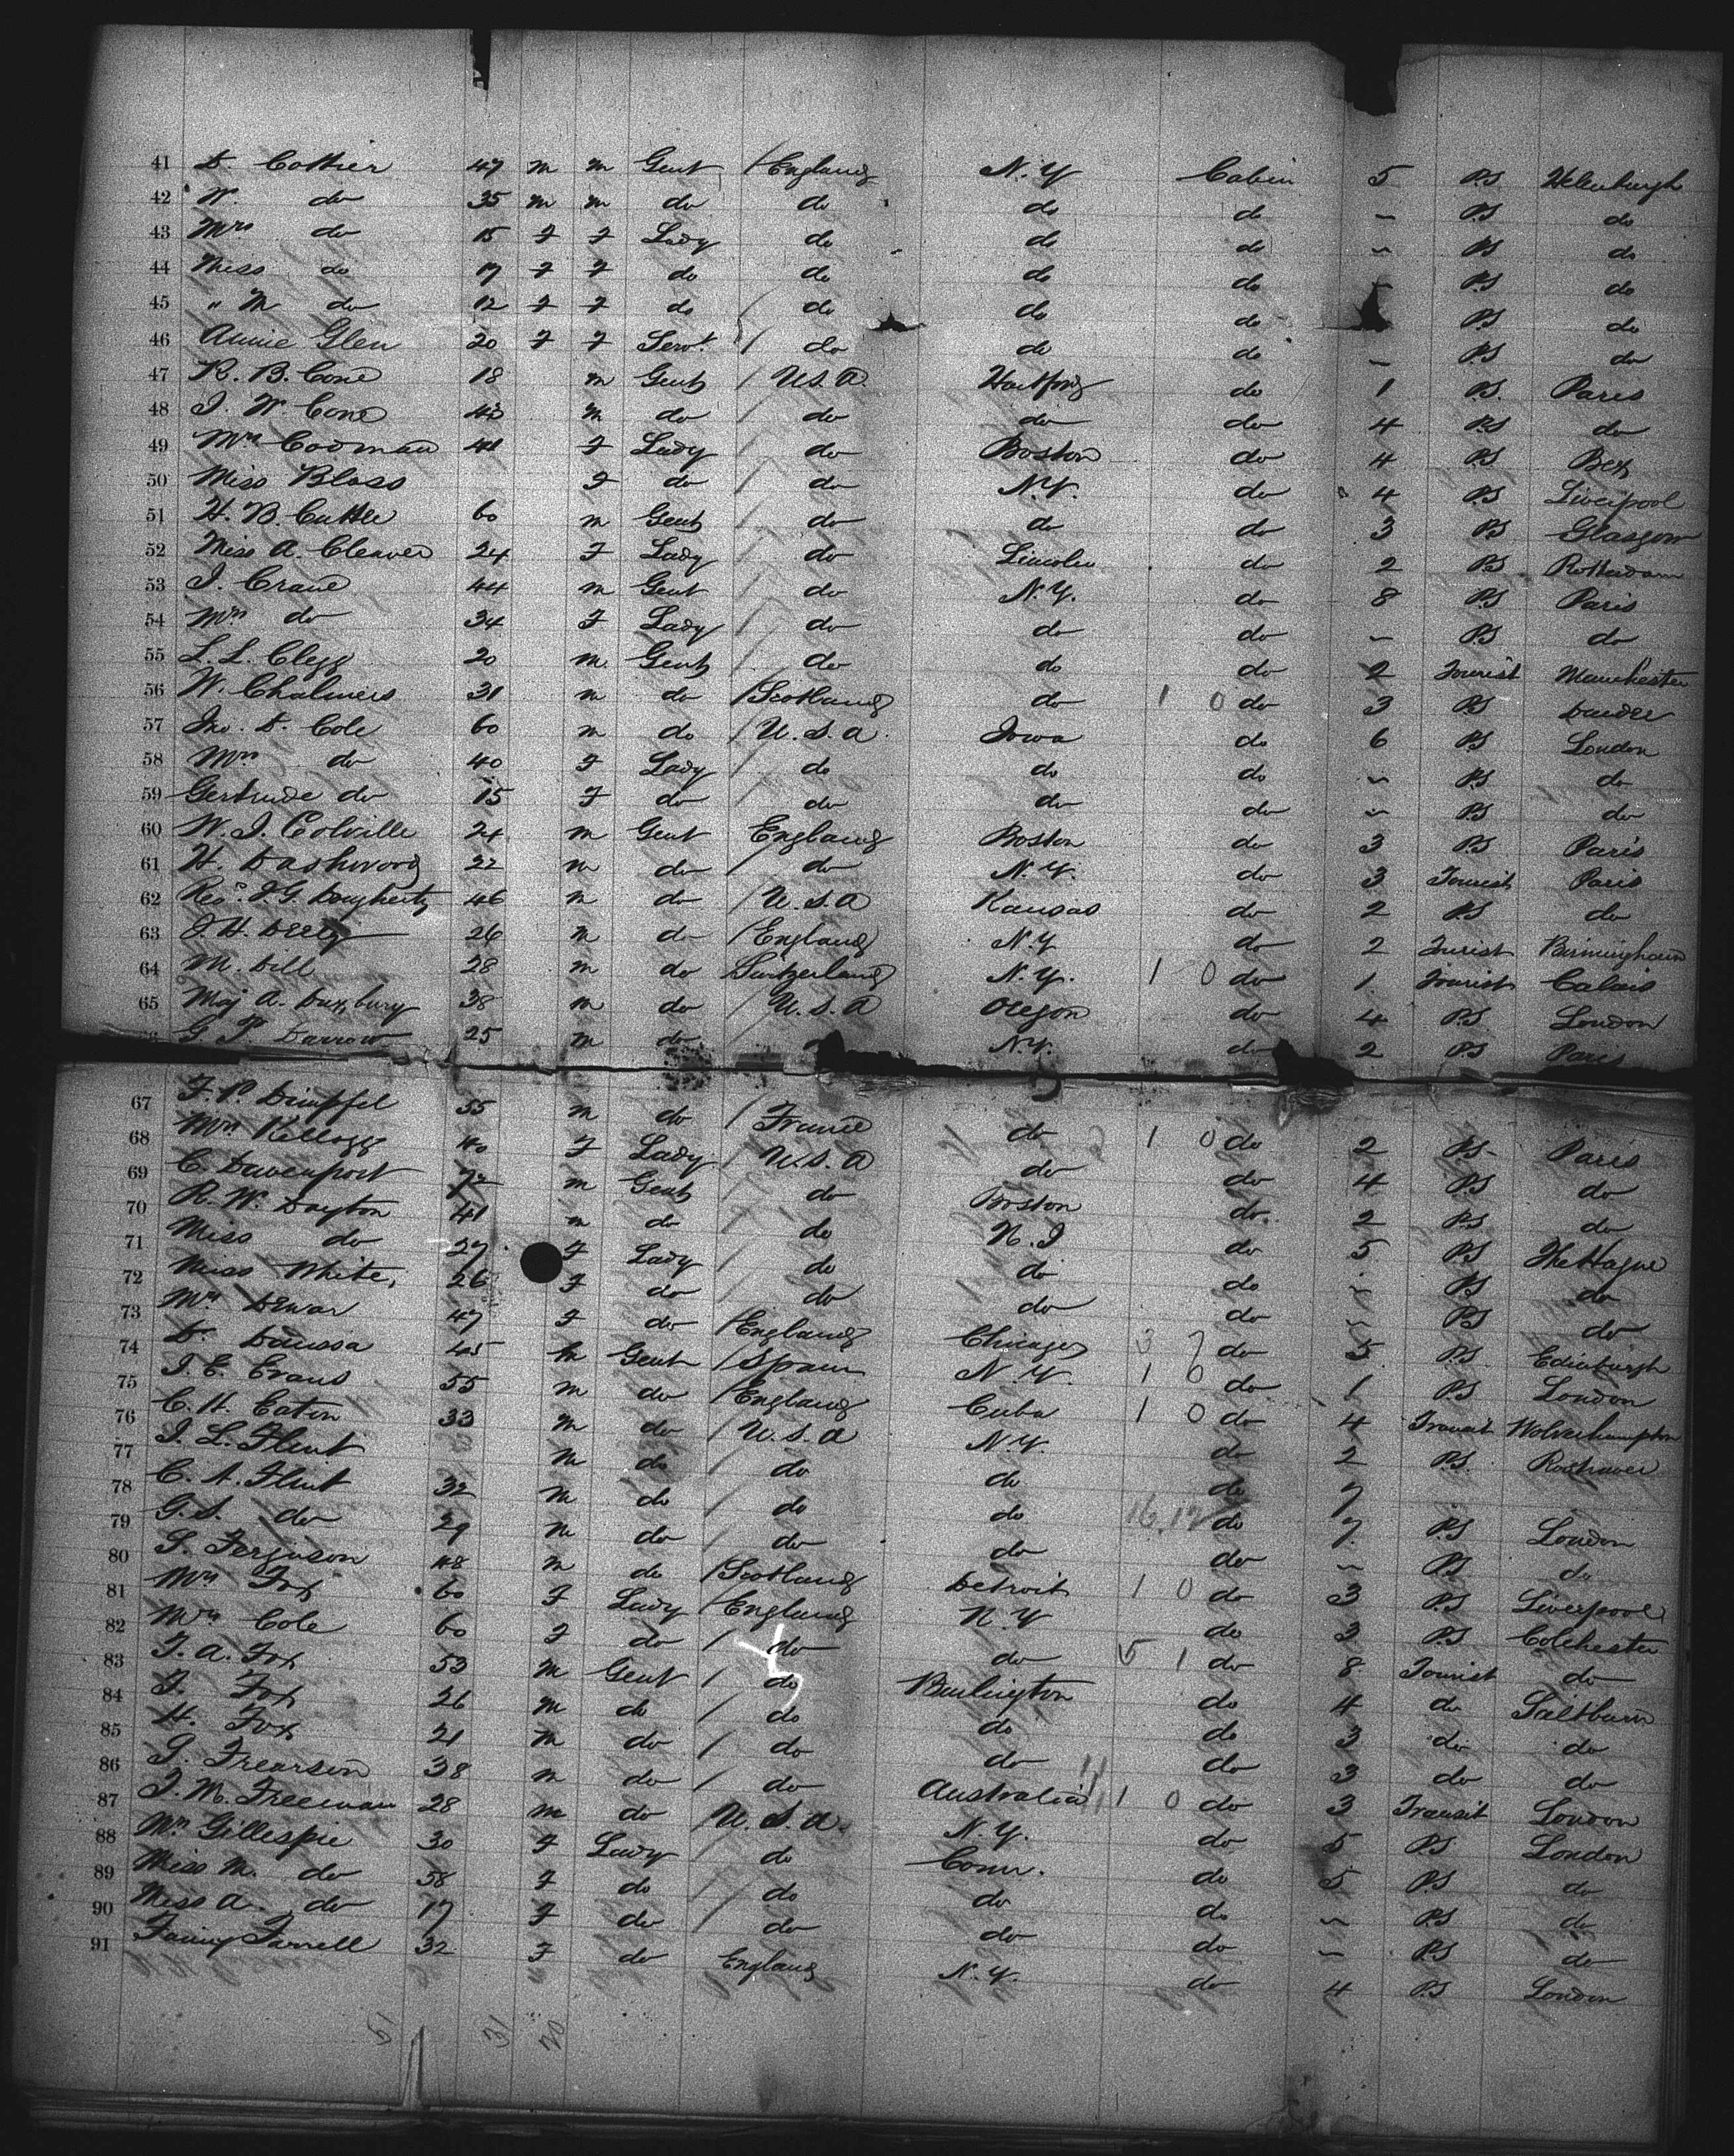 41 D. Cottier 47 m m Gent / England N.Y Cabin 5 P.S Helenburgh
42 W. do 35 m m do do do do – P.S do
43 Mrs do 15 F F Lady do do do – P.S do
44 Miss do 17 F F do do do do – P.S do
45 " M do 12 F F do / do do do P.S do
46 Annie Glen 20 F F Servt / do do do – P.S do
47 R. B. Cone 18 m Gent / U.S.A. Hartford do 1 P.S. Paris
48 J. W. Cone 42 m do / do do do 4 P.S do
49 Mrs Codman 41 F Lady / do Boston do 4 P.S Bex
50 Miss Bloss F do / do N.Y. do 4 P.S Liverpool
51 H. B. Cuttle 60 m Gent / do do do 3 P.S Glasgow
52 Miss A. Cleaver 24 F Lady / do Lincoln do 2 P.S Rotterdam
53 J. Crane 44 m Gent / do N.Y. do 8 P.S Paris
54 Mrs do 34 F Lady / do do do – P.S do
55 L. L. Clegg 20 m Gent / do do do 2 Tourist Manchester
56 W. Chalmers 31 m do / Scotland do 1 0 do 3 P.S Dundee
57 Jno. D. Cole 60 m do / U.S.A. Iowa do 6 P.S London
58 Mrs do 40 F Lady / do do do – P.S do
59 Gertrude do 15 F do / do do do – P.S do
60 W. J. Colville 24 m Gent England Boston do 3 P.S Paris
61 H. Dashwood 22 m do / do N.Y. do 3 Tourist Paris
62 Rev. J. G. Dougherty 46 m do / U.S.A Kansas do 2 P.S do
63 J H. Deely 26 m do / England N.Y do 2 Turist Birmingham
64 M. Dill 28 m do Switzerland N.Y. 1 0 do 1 Tourist Calais
65 Maj A. Duxbury 38 m do / U.S.A Oregon do 4 P.S London
66 G. P. Darrow 25 m do N.Y. do 2 P.S Paris
67 F. P. Dimpfel 55 m do / France do 1 0 do 2 P.S Paris
68 Mrs Kellogg 40 F Lady / U.S.A do do 4 P.S do
69 C. Davenport 72 m Gent / do Boston do 2 P.S do
70 R. W. Dayton 41 m do / do N.J do 5 P.S The Hague
71 Miss do 27 F Lady / do do do – P.S do
72 Miss White 26 F do / do do do – P.S do
73 Mrs Dewar 47 F do / England Chicago 3 7 do 5 P.S Edinburgh
74 D. Daussa 45 m Gent / Spain N.Y. 1 0 do 1 P.S London
75 J. E. Evans 55 m do / England Cuba 1 0 do 4 Transit Wolverhampton
76 C. H. Eaton 33 m do / U.S.A N.Y. do 2 P.S.
77 J. L. Flint m do / do do do 7
78 C. A. Flint 32 m do / do do 16.12 do 7 P.S London
79 G. S. do 29 m do / do do do – P.S do
80 S. Ferguson 48 m do / Scotland Detroit 1 0 do 3 P.S Liverpool
81 Mrs Fox 60 F Lady / England N.Y do 3 P.S Colchester
82 Mrs Cole 60 F do / do do 5 1 do 8 Tourist do
83 T. A. Fox 53 m Gent / do Burlington do 4 do Saltburn
84 F. Fox 26 m do / do do do 3 do do
85 H. Fox 21 m do / do do do 3 do do
86 S. Frearson 38 m do / do Australia 1 0 do 3 Transit London
87 J. M. Freeman 28 m do U.S.A. N.Y. do 5 P.S London
88 Mrs Gillespie 30 F Lady / do Conn. do 5 P.S do
89 Miss M. do 58 F do / do do do – P.S do
90 Miss A. do 17 F do / do do do – P.S do
91 Fanny Farrell 32 F do England N.Y. do 4 P.S London
51 31 20